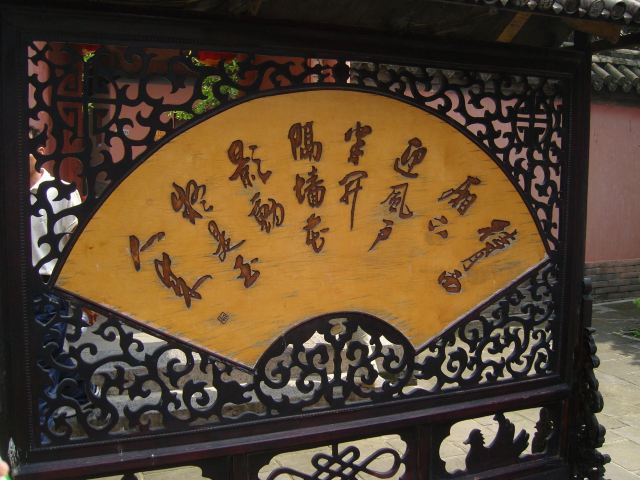 待月西
厢下
迎风户
半开
隔墙花
影動
疑是玉
人来